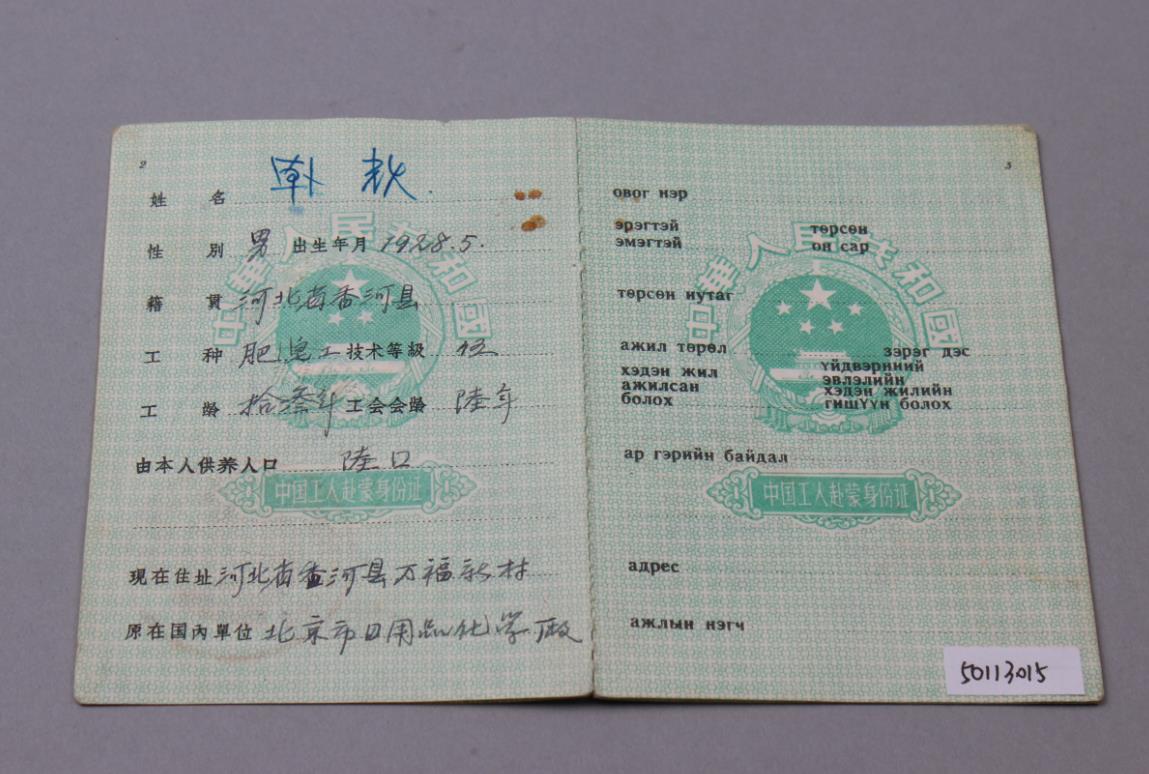 2
姓 名
性 別 男 出生年月 1928.5.
籍 貫 河北省香河县
工 种 肥皂工 技术等級 伍
工 龄 拾叁年 工会会龄 陸年
由本人供养人口 陸口
現在住址 河北省香河县万福新村
原在国內單位 北京市日用品化学厰
中華人民共和國
中国工人赴蒙身份证
3
овог нэр
эрэгтэй
эмэгтэй
төрсөн
он сар
төрсөн нутаг
ажил төрөл
зэрэг дэс
хэдэн жил
ажилсан
болох
үйдвэрниий
эвлэлийн
хэдэн жилийн
гишүүн болох
ар гэрийн байдал
адрес
ажлын нэгч
中華人民共和國
中国工人赴蒙身份证
50113015